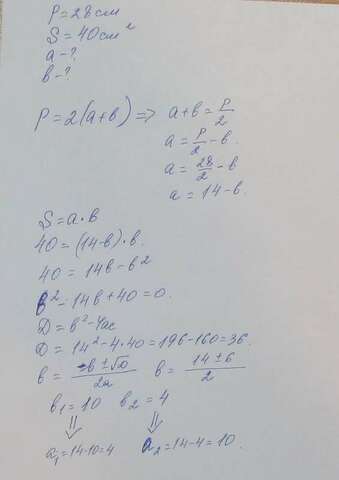 P=28см
S=40см²
a-?
в-?
P=2(a+в) => a+в=P/2
a=P/2-в.
a=28/2-в
a=14-в.
S=a·в
40=(14-в)·в.
40=14в-в²
в²-14в+40=0.
D=в²-4ac
D=14²-4·40=196-160=36.
в=-в±√D/2a в=14±6/2
в₁=10 в₂=4
⇓ ⇓
a₁=14-10=4 a₂=14-4=10.